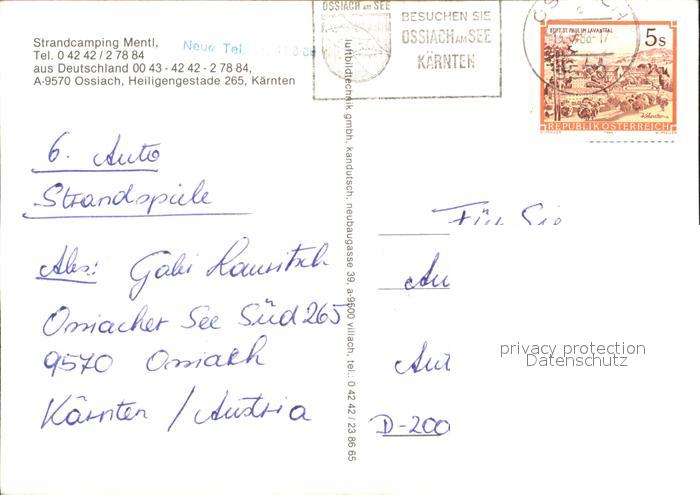 Strandcamping Mentl,
Tel. 0 42 42 / 2 78 84
aus Deutschland 00 43 - 42 42 - 2 78 84,
A-9570 Ossiach, Heiligengestade 265, Kärnten
Neue Tel.
OSSIACH AM SEE
BESUCHEN SIE
OSSIACH AM SEE
KÄRNTEN
STIFT ST. PAUL IM LAVANTTAL
5 S
REPUBLIK ÖSTERREICH
6. Auto
Strandspiele
Abs.: Gabi
Ossiacher See Süd 265
9570 Ossiach
Kärnten / Austria
luftbildtechnik gmbh, kandutsch, neubaugasse 39, a-9500 villach, tel.: 0 42 42 / 23 86 65
Für Sie
Au
Aut
D-200
privacy protection
Datenschutz